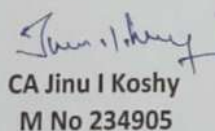 CA Jinu I Koshy
M No 234905